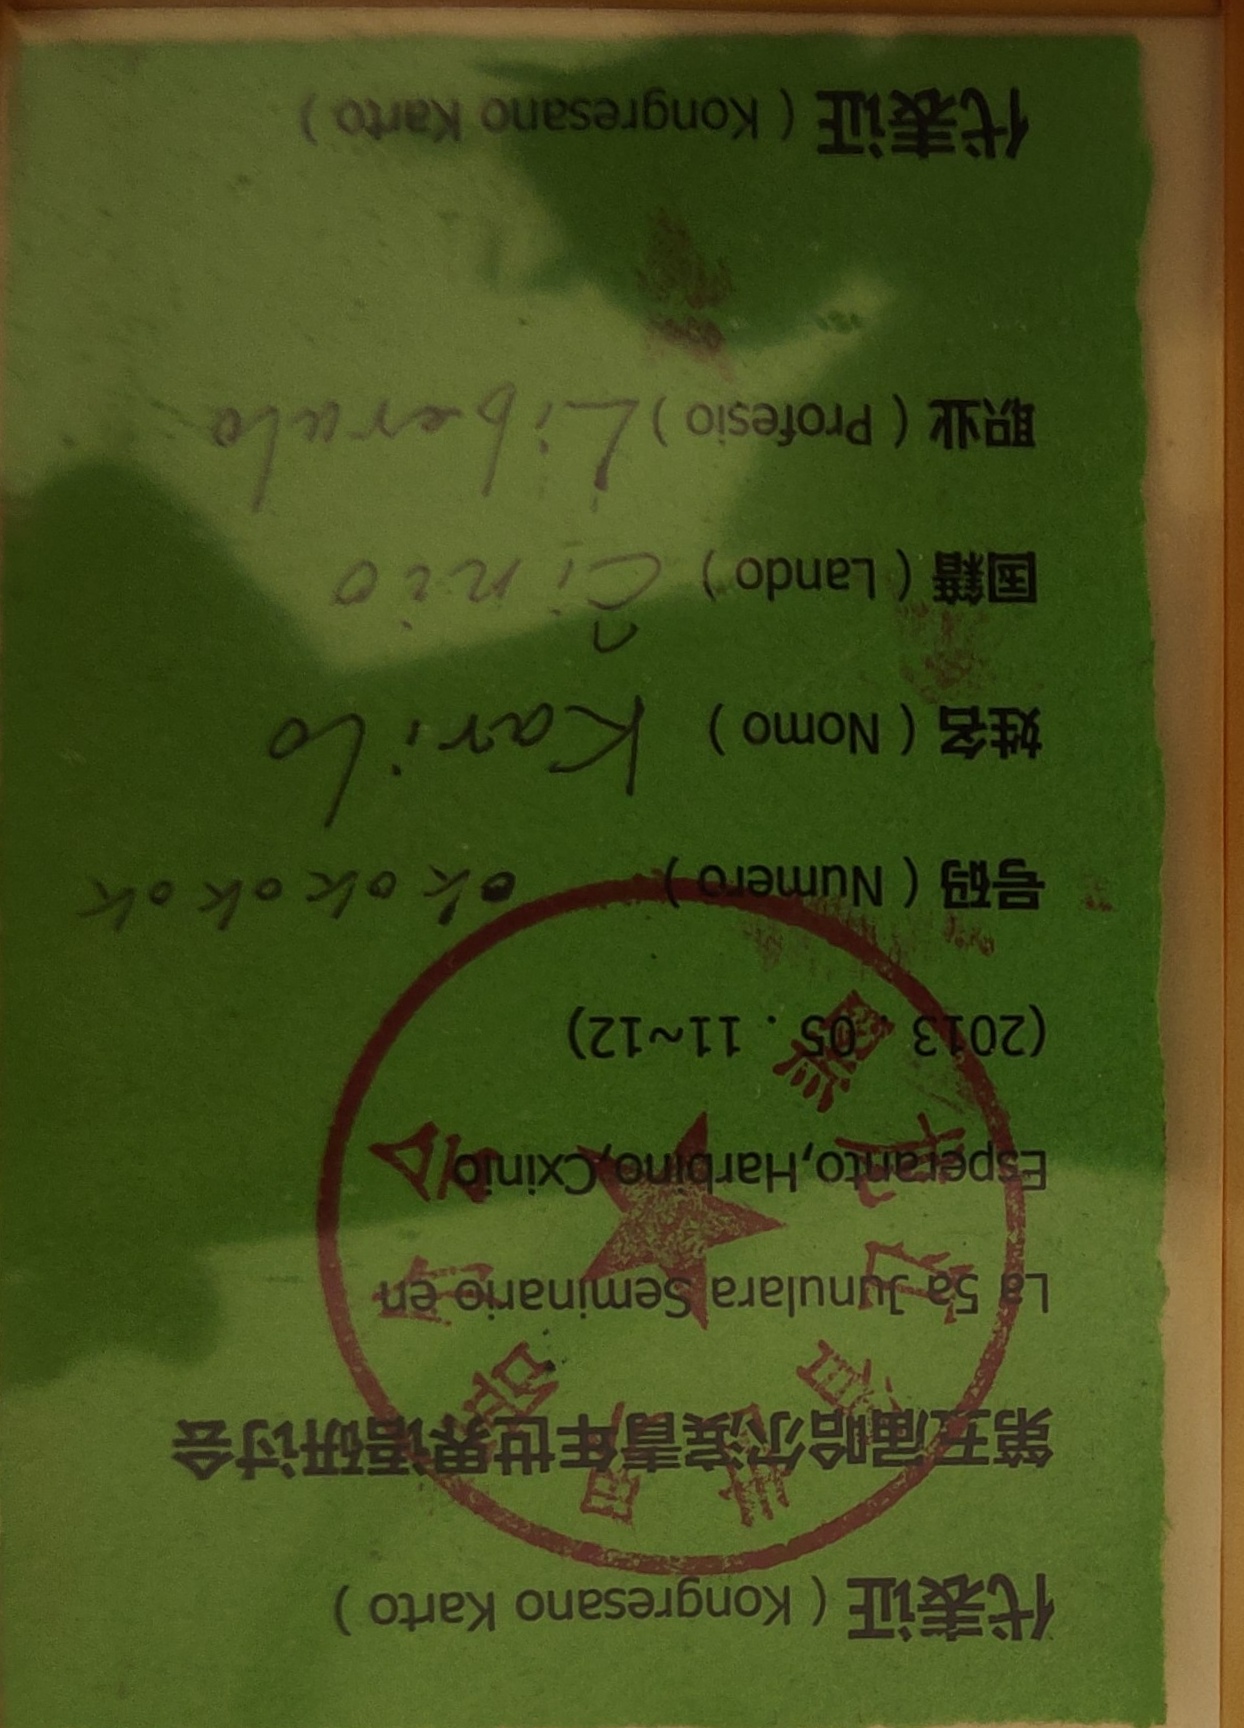 代表证 ( Kongresano Karto )
第五届哈尔滨青年世界语研讨会
La 5a Junulara Seminario en
Esperanto,Harbino,Cxinio
(2013 . 05 . 11~12)
号码 ( Numero ) okokokok
姓名 ( Nomo ) Karilo
国籍 ( Lando ) Ĉinio
职业 ( Profesio ) Liberulo
代表证 ( Kongresano Karto )
黑龙江省世界语协会